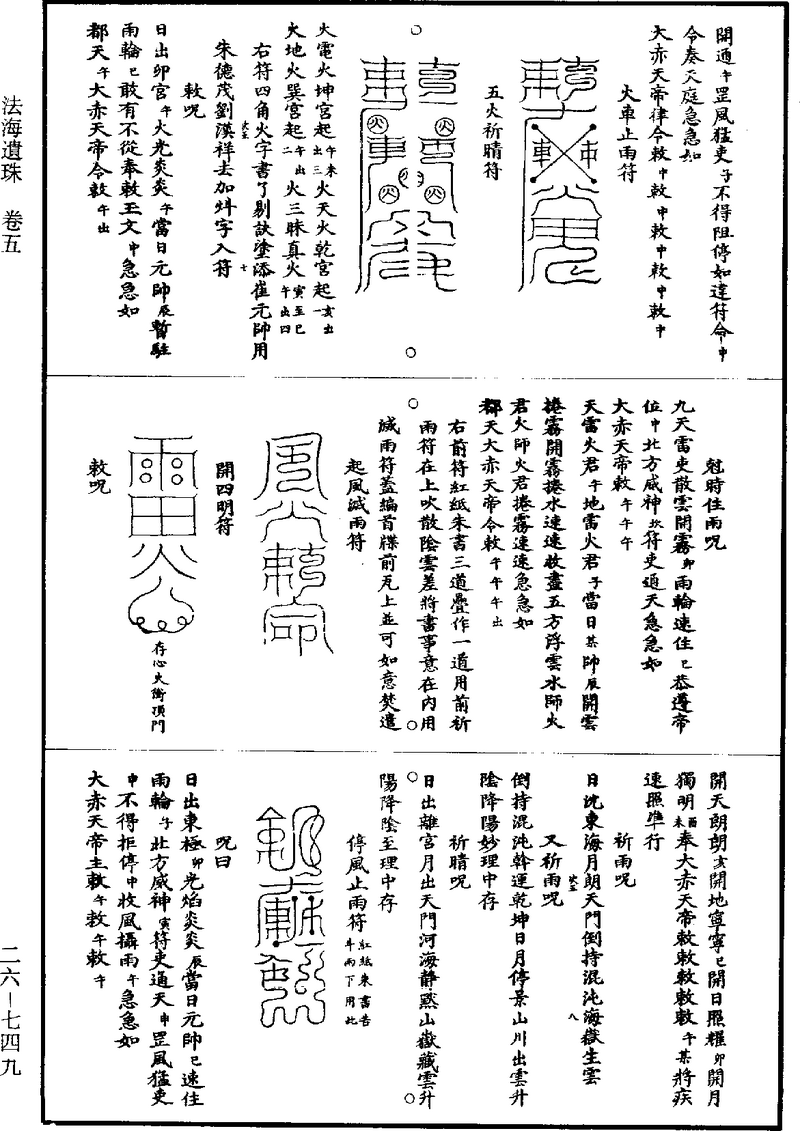 開通午罡風猛吏子不得阻停如違符命申
令奏天庭急急如
大赤天帝律令敕申敕申敕申敕申敕申
火車止雨符
五火祈晴符
火電火坤宮起午未出三火天火乾宮起亥出一
火地火巽宮起午出二火三昧真火寅至巳午出四
右符四角火字書了剔訣塗添崔元帥用
朱德茂劉漢祥去加炓字入符
敕呪
日出卯宮午火光炎炎午當日元帥辰暫駐
雨輪巳敢有不從奉敕玉文申急急如
都天午大赤天帝令敕午出
尅時住雨呪
九天雷吏散雲開霧卯雨輪速住巳恭遵帝
位申北方威神坎符吏通天急急如
大赤天帝敕午午午
天雷火君午地雷火君子當日某帥辰開雲
捲霧開霧捲水速速收盡五方浮雲水師火
君火師火君捲霧速速急急如
都天大赤天帝令敕午午午出
右前符紅紙朱書三道疊作一道用前祈
雨符在上吹散陰雲差將書事意在內用
滅雨符蓋編首牒前瓦上並可如意焚遣
起風滅雨符
開四明符
存心火衝頂門
敕呪
開天朗朗亥開地寧寧巳開日照耀卯開月
獨明酉未奉大赤天帝敕敕敕敕敕午某將疾
速照準行
祈雨呪
日沈東海月朗天門倒持混沌海嶽生雲
又祈雨呪
倒持混沌斡運乾坤日月停景山川出雲升
陰降陽妙理中存
祈晴呪
日出離宮月出天門河海靜默山嶽藏雲升
陽降陰至理中存
停風止雨符紅紙朱書告斗雨下用此
呪曰
日出東極卯光焰炎炎辰當日元帥巳速住
雨輪子北方威神寅符吏通天申罡風猛吏
申不得拒停申收風攝雨午急急如
大赤天帝主敕午敕午敕午
法海遺珠　卷五
二六—七四九